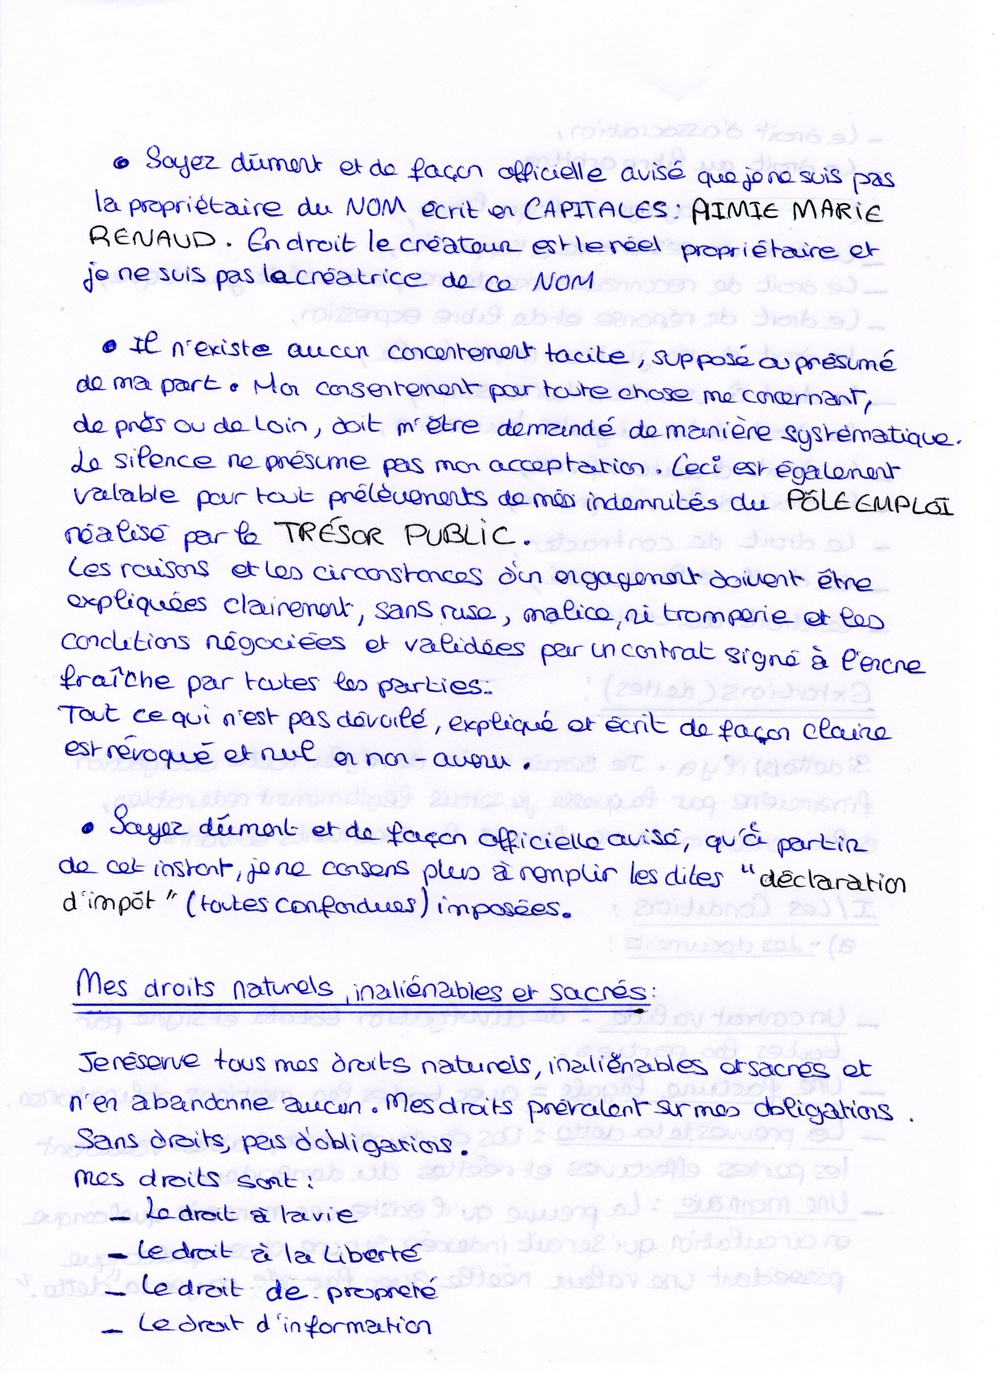 • Soyez dûment et de façon officielle avisé que je ne suis pas
la propriétaire du NOM écrit en CAPITALES : AIMIE MARIE
RENAUD. En droit le créateur est le réel propriétaire et
je ne suis pas la créatrice de ce NOM
• Il n'existe aucun concentement tacite, supposé ou présumé
de ma part. Mon consentement pour toute chose me concernant,
de près ou de loin, doit m'être demandé de manière systématique.
Le silence ne présume pas mon acceptation. Ceci est également
valable pour tout prélèvements de mes indemnités du PÔLE EMPLOI
réalisé par le TRÉSOR PUBLIC.
Les raisons et les circonstances d'un engagement doivent être
expliquées clairement, sans ruse, malice, ni tromperie et les
conditions négociées et validées par un contrat signé à l'encre
fraîche par toutes les parties.
Tout ce qui n'est pas dévoilé, expliqué et écrit de façon claire
est révoqué et nul et non-avenu.
• Soyez dûment et de façon officielle avisé, qu'à partir
de cet instant, je ne consens plus à remplir les dites "déclaration
d'impôt" (toutes confondues) imposées.
Mes droits naturels, inaliénables et sacrés :
Je réserve tous mes droits naturels, inaliénables et sacrés et
n'en abandonne aucun. Mes droits prévalent sur mes obligations.
Sans droits, pas d'obligations.
Mes droits sont :
– Le droit à la vie
– Le droit à la liberté
– Le droit de propreté
– Le droit d'information